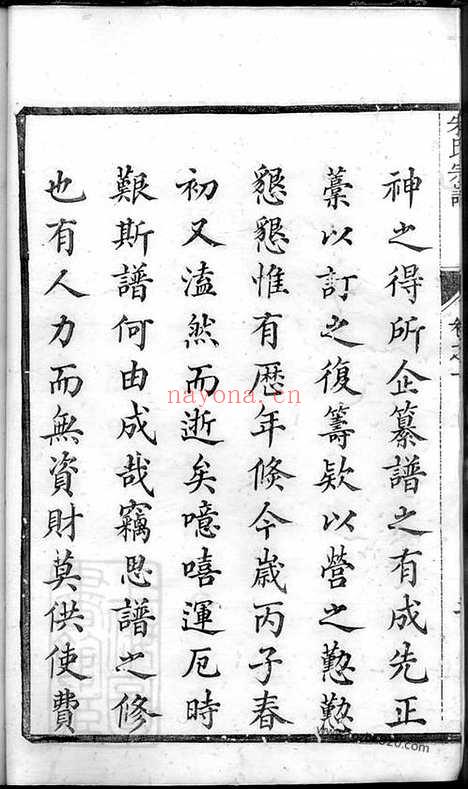 神之得所企纂譜之有成先正
藁以訂之復籌欵以營之懃懃
懇懇惟有歷年倏今歲丙子春
初又溘然而逝矣噫嘻運厄時
艱斯譜何由成哉竊思譜之修
也有人力而無資財莫供使費
nayona.cn